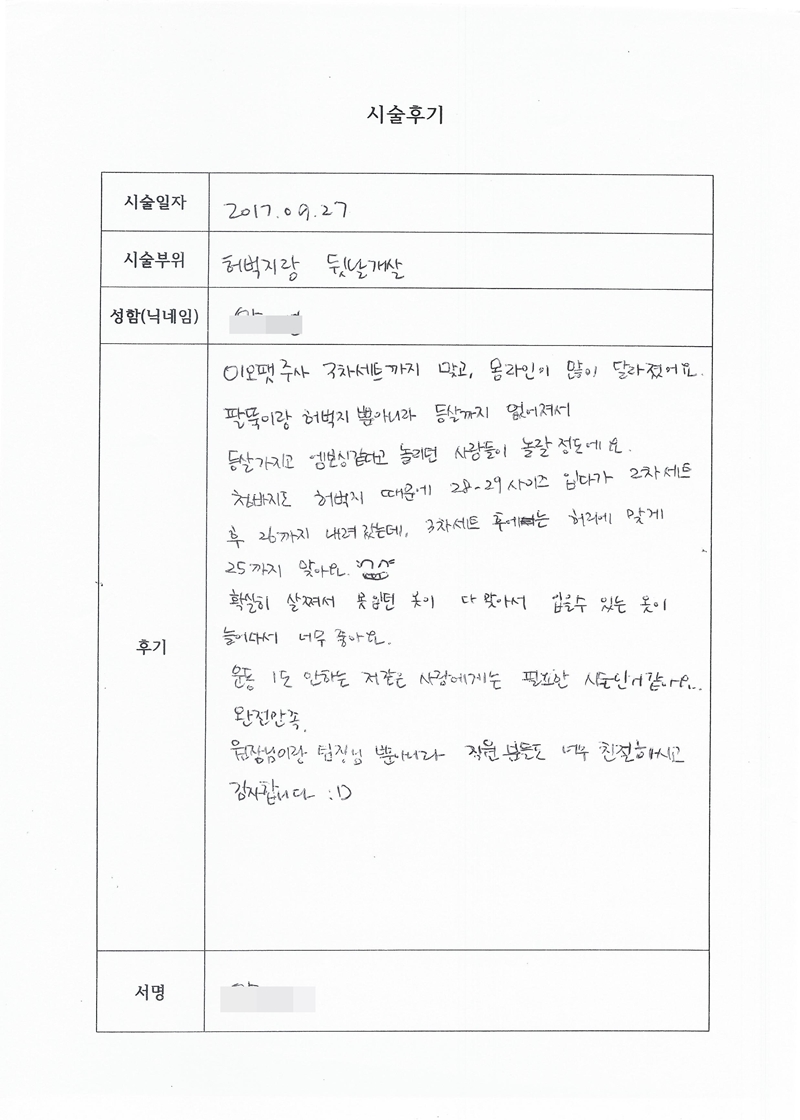 시술후기
시술일자 2017.09.27
시술부위 허벅지랑 뒷날개살
성함(닉네임)
이오팻주사 3차세트까지 맞고, 몸라인이 많이 달라졌어요.
팔뚝이랑 허벅지 뿐아니라 등살까지 없어져서
등살가지고 엠보싱같다고 놀리던 사람들이 놀랄 정도에요.
청바지도 허벅지 때문에 28-29사이즈 입다가 2차세트
후 26까지 내려갔는데, 3차세트 후에는 허리에 맞게
25까지 맞아요.
후기
확실히 살쪄서 못입던 옷이 다 맞아서 입을수 있는 옷이
늘어나서 너무 좋아요.
운동 1도 안하는 저같은 사람에게는 필요한 시술인거같아요..
완전만족.
원장님이랑 팀장님 뿐아니라 직원분들도 너무 친절하시고
감사합니다 :D
서명